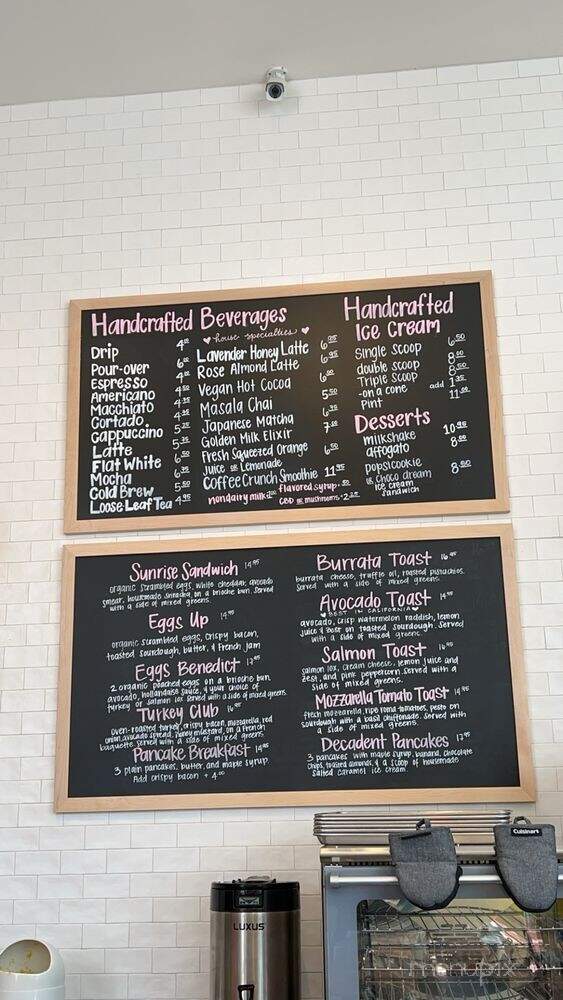 Handcrafted Beverages
Drip 4
Pour-over 6
Espresso 4
Americano 4
Macchiato 4
Cortado 4
Cappuccino 5
Latte 5
Flat White
Mocha 6
Cold Brew 5
Loose Leaf Tea 4.95
♥ house specialties ♥
Lavender Honey Latte 6.95
Rose Almond Latte 6.95
Vegan Hot Cocoa 6
Masala Chai 5
Japanese Matcha 6
Golden Milk Elixir 7
Fresh Squeezed Orange
Juice or Lemonade 6.50
Coffee Crunch Smoothie 11.95
nondairy milk flavored syrup .50
CBD or mushrooms
Handcrafted
Ice Cream
Single Scoop 6.50
double scoop 8
Triple Scoop 8
-on a cone add 1
Pint 11
Desserts
milkshake 10.95
affogato 8
popsicookie
or choco dream 8
ice cream
sandwich
Sunrise Sandwich 14.95
organic scrambled eggs, white cheddar, avocado
smear, housemade sriracha, on a brioche bun. served
with a side of mixed greens.
Eggs Up 14.95
organic scrambled eggs, crispy bacon,
toasted sourdough, butter, & French jam
Eggs Benedict 17.95
2 organic poached eggs on a brioche bun,
avocado, hollandaise sauce, & your choice of
turkey or salmon lox served with a side of mixed greens.
Turkey Club 16.95
oven-roasted turkey, crispy bacon, mozzarella, red
onion, avocado spread, honey mustard, on a French
baguette. served with a side of mixed greens.
Pancake Breakfast 14.95
3 plain pancakes, butter, and maple syrup.
Add crispy bacon + 4.00
Burrata Toast 16.95
burrata cheese, truffle oil, roasted pistachios.
Served with a side of mixed greens.
Avocado Toast 14.95
♥ BEST IN CALIFORNIA ♥
avocado, crisp watermelon raddish, lemon
juice & zest on toasted sourdough. Served
with a side of mixed greens.
Salmon Toast 16.95
salmon lox, cream cheese, lemon juice and
zest, and pink peppercorn. Served with a
side of mixed greens.
Mozzarella Tomato Toast 14.95
fresh mozzarella, ripe roma tomatoes, pesto on
sourdough with a basil chiffonade. Served with
a side of mixed greens.
Decadent Pancakes 17.95
3 pancakes with maple syrup, banana, chocolate
chips, toasted almonds, & a scoop of housemade
salted caramel ice cream.
Cuisinart
LUXUS
menupix